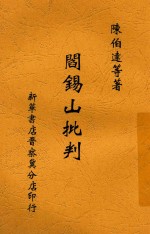 陳伯達等著
閻錫山批判
新華書店晋察冀分店印行